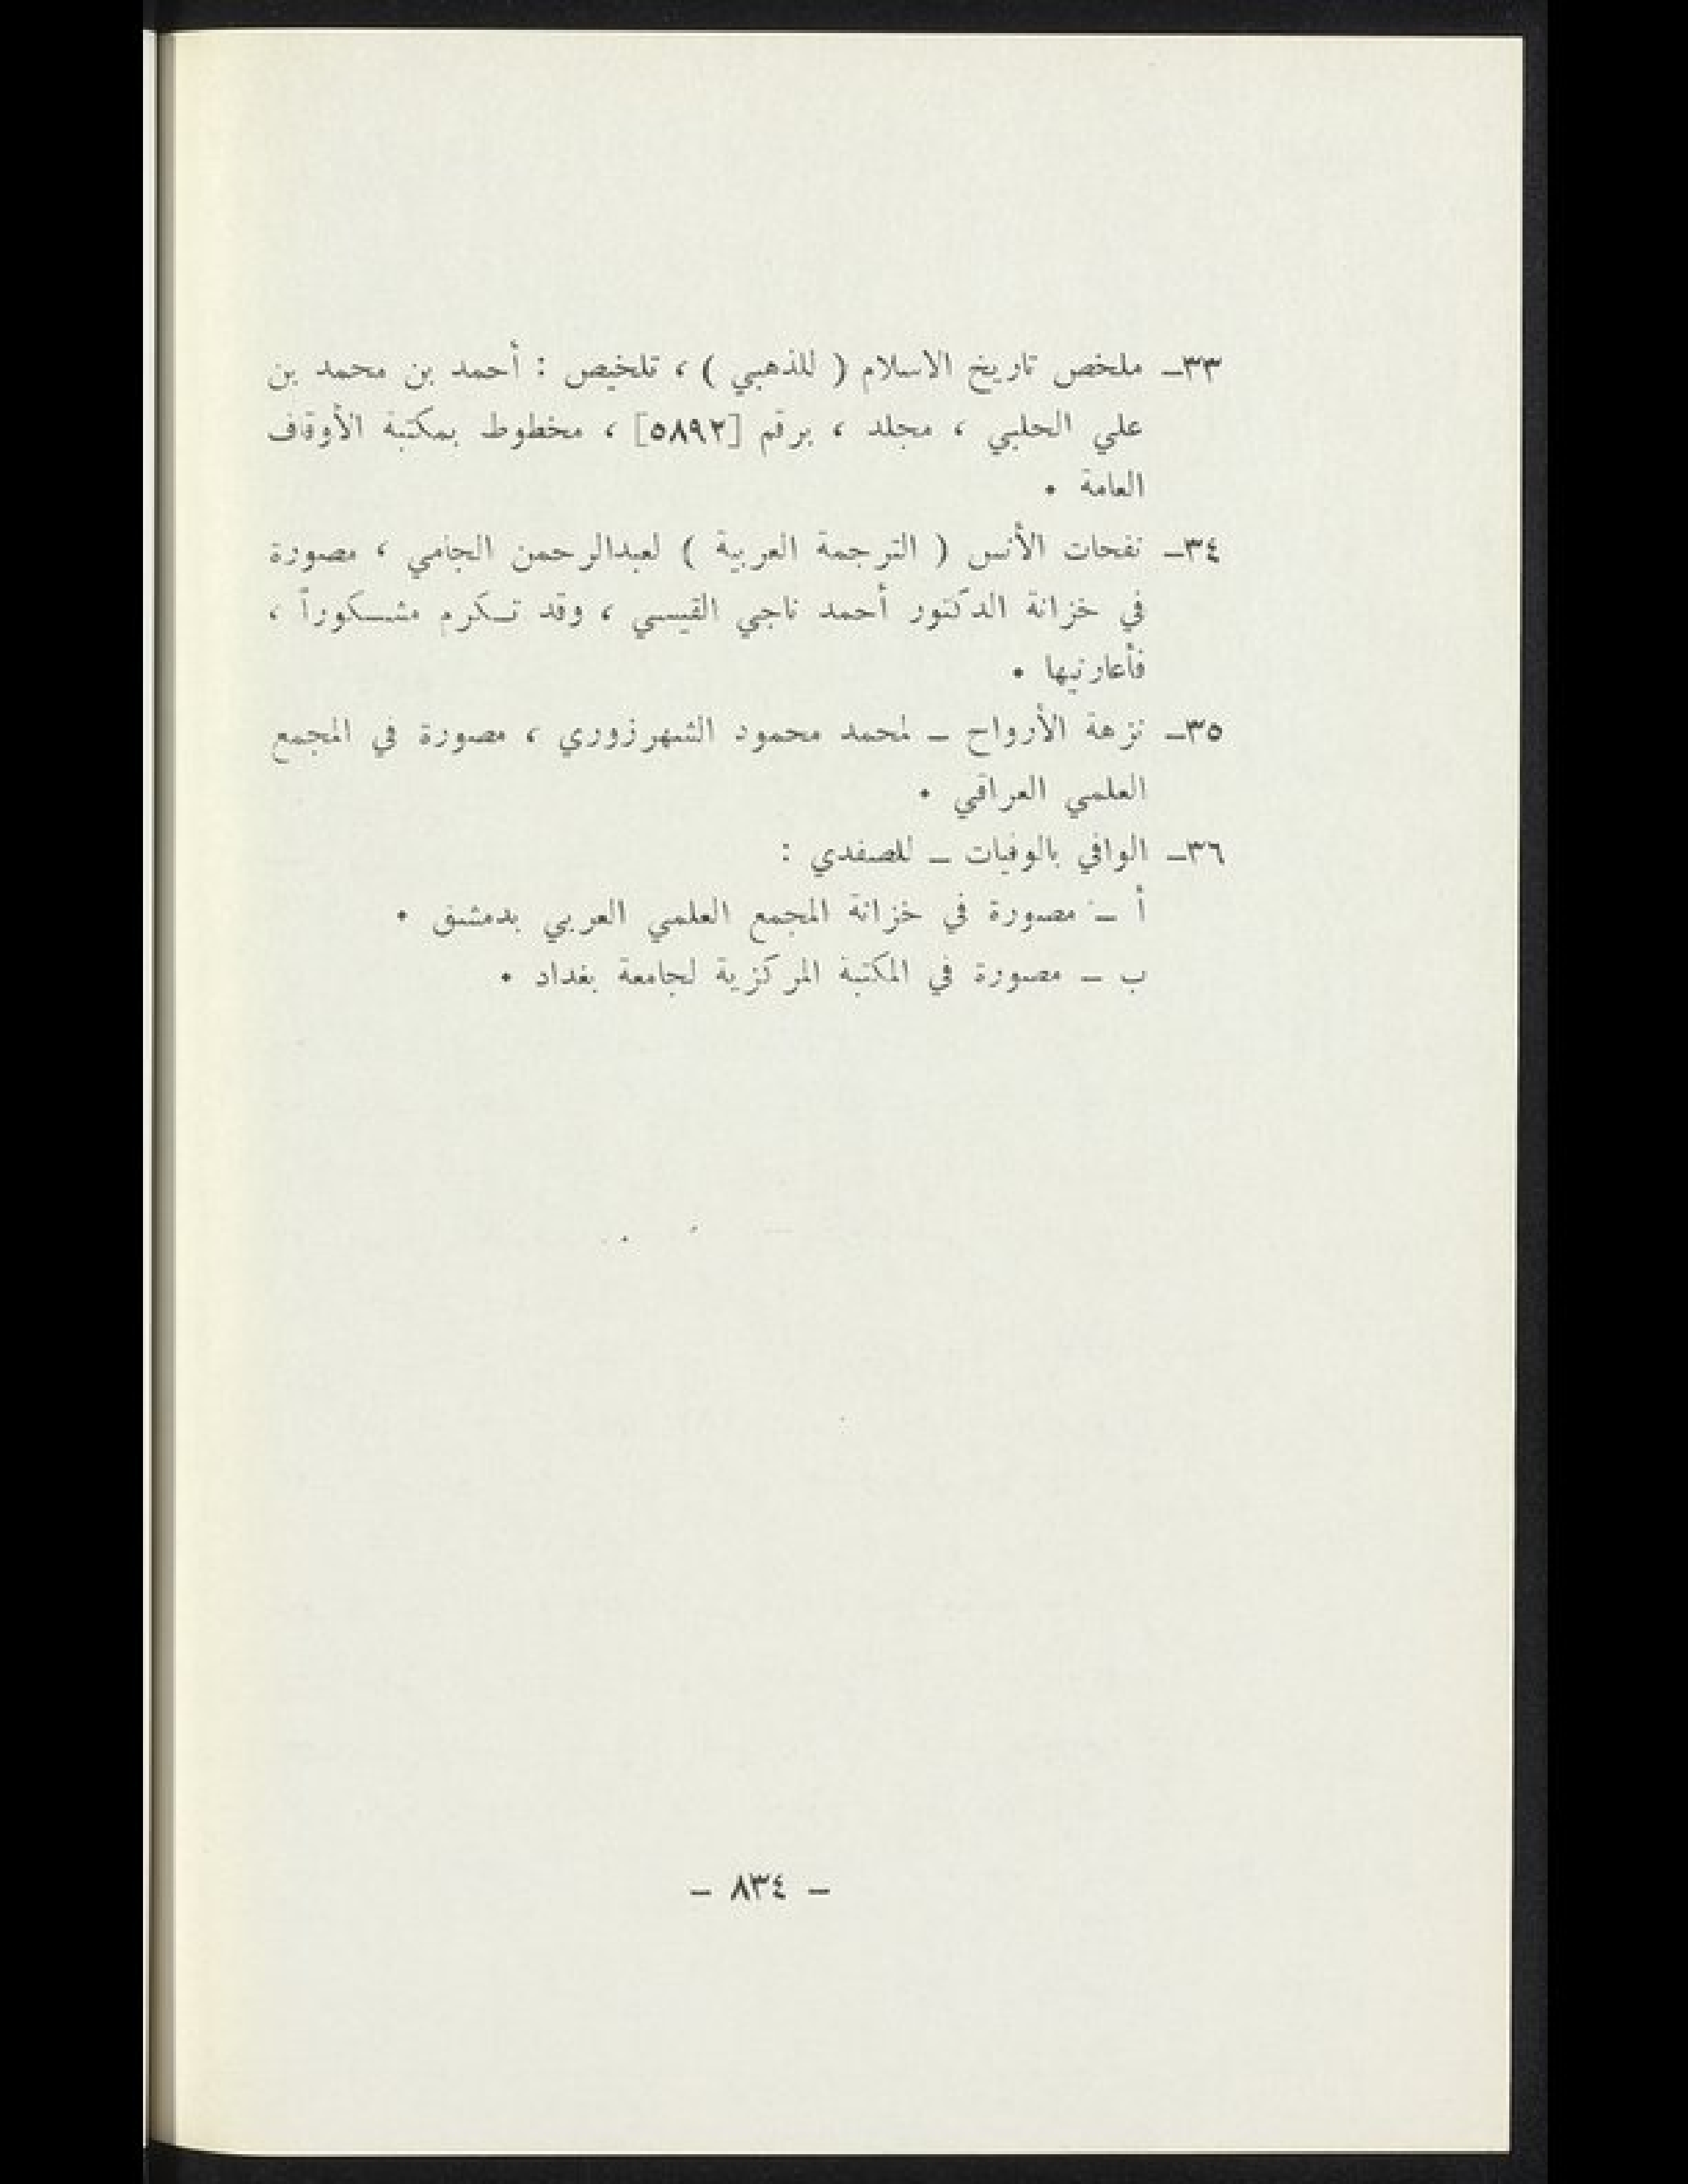 ٣٣ـ ملخص تاريخ الاسلام ( للذهبي ) ، تلخيص : أحمد بن محمد بن
علي الحلبي ، مجلد ، برقم [٥٨٩٢] ، مخطوط بمكتبة الأوقاف
العامة •
٣٤ـ نفحات الأنس ( الترجمة العربية ) لعبدالرحمن الجامي ، مصورة
في خزانة الدكتور أحمد ناجي القيسي ، وقد تـكرم مشـكوراً ،
فأعارنيها •
٣٥ـ نزهة الأرواح ـ لمحمد محمود الشهرزوري ، مصورة في المجمع
العلمي العراقي •
٣٦ـ الوافي بالوفيات ـ للصفدي :
أ ـ مصورة في خزانة المجمع العلمي العربي بدمشق •
ب ـ مصورة في المكتبة المركزية لجامعة بغداد •
ـ ٨٣٤ ـ